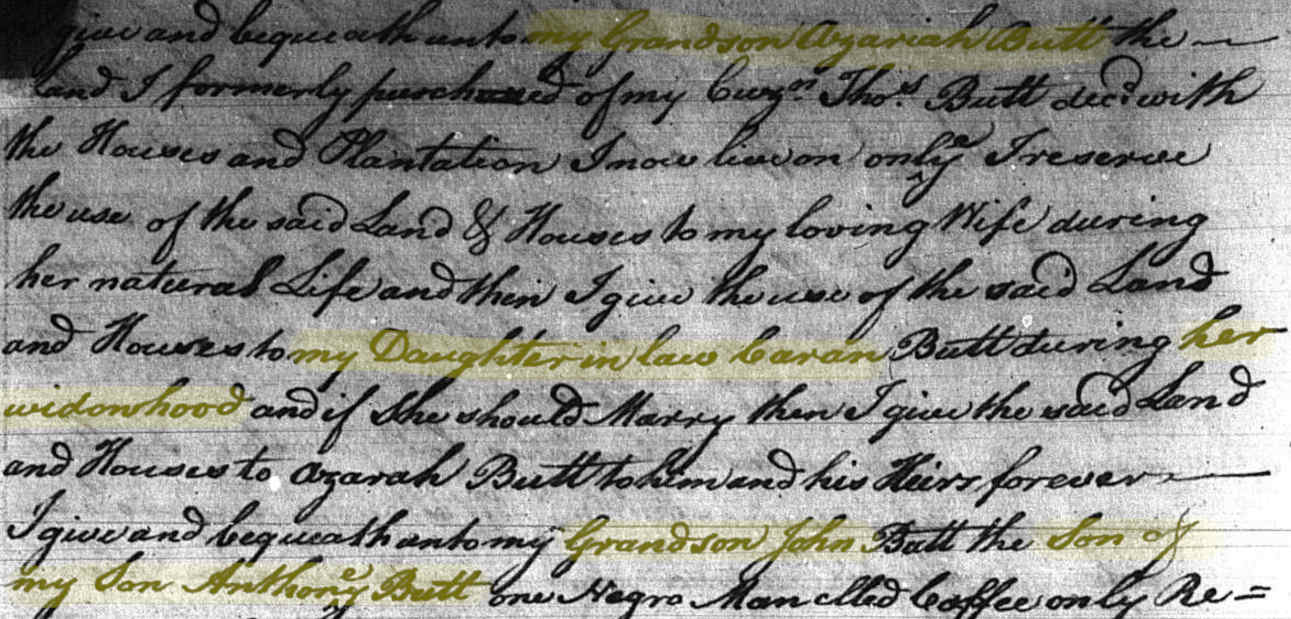 give and bequeath unto my Grandson Azariah Butt the —
Land I formerly purchased of my Cuzn. Thos. Butt decd. with
the Houses and Plantation I now live on only I reserve
the use of the said Land & Houses to my loving Wife during
her natural Life and then I give the use of the said Land
and Houses to my Daughter in law Caran Butt during her
widowhood and if She should Marry then I give the said Land
and Houses to Azarah Butt to him and his Heirs forever —
I give and bequeath unto my Grandson John Butt the Son of
my Son Anthony Butt one Negro Man clled Coffee only Re=